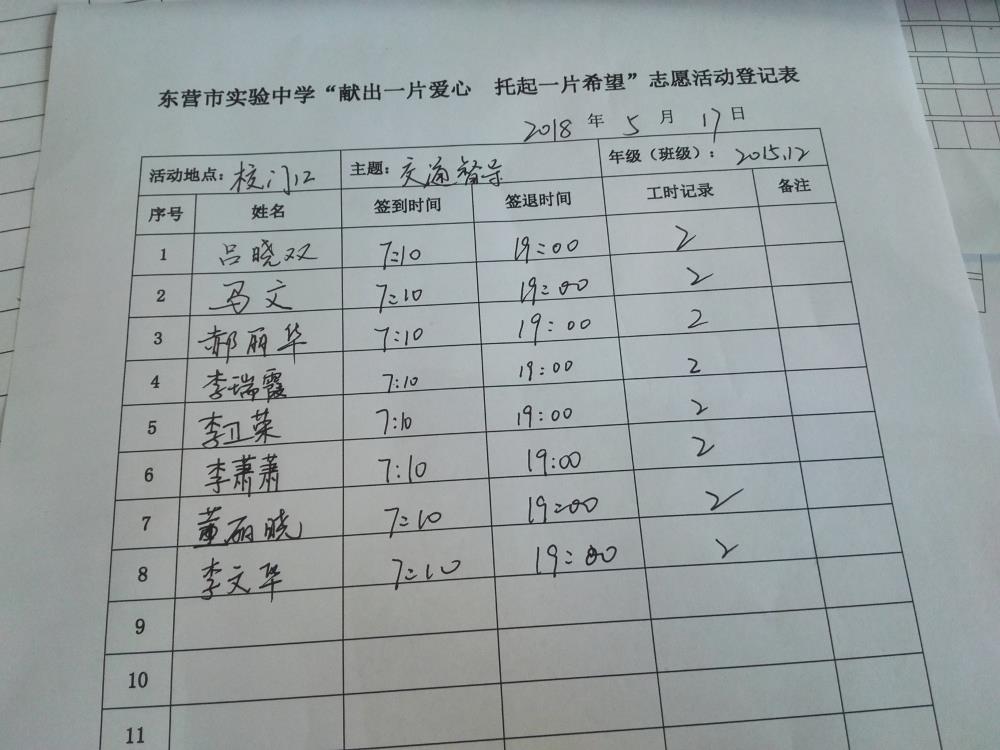 东营市实验中学“献出一片爱心 托起一片希望”志愿活动登记表
2018 年 5 月 17 日
活动地点：校门口 主题：交通督导 年级（班级）：2015.12
序号 姓名 签到时间 签退时间 工时记录 备注
1 吕晓双 7:10 19:00 2
2 马文 7:10 19:00 2
3 郝丽华 7:10 19:00 2
4 李瑞霞 7:10 19:00 2
5 李卫荣 7:10 19:00 2
6 李萧萧 7:10 19:00 2
7 董丽晓 7:10 19:00 2
8 李文华 7:10 19:00 2
9
10
11